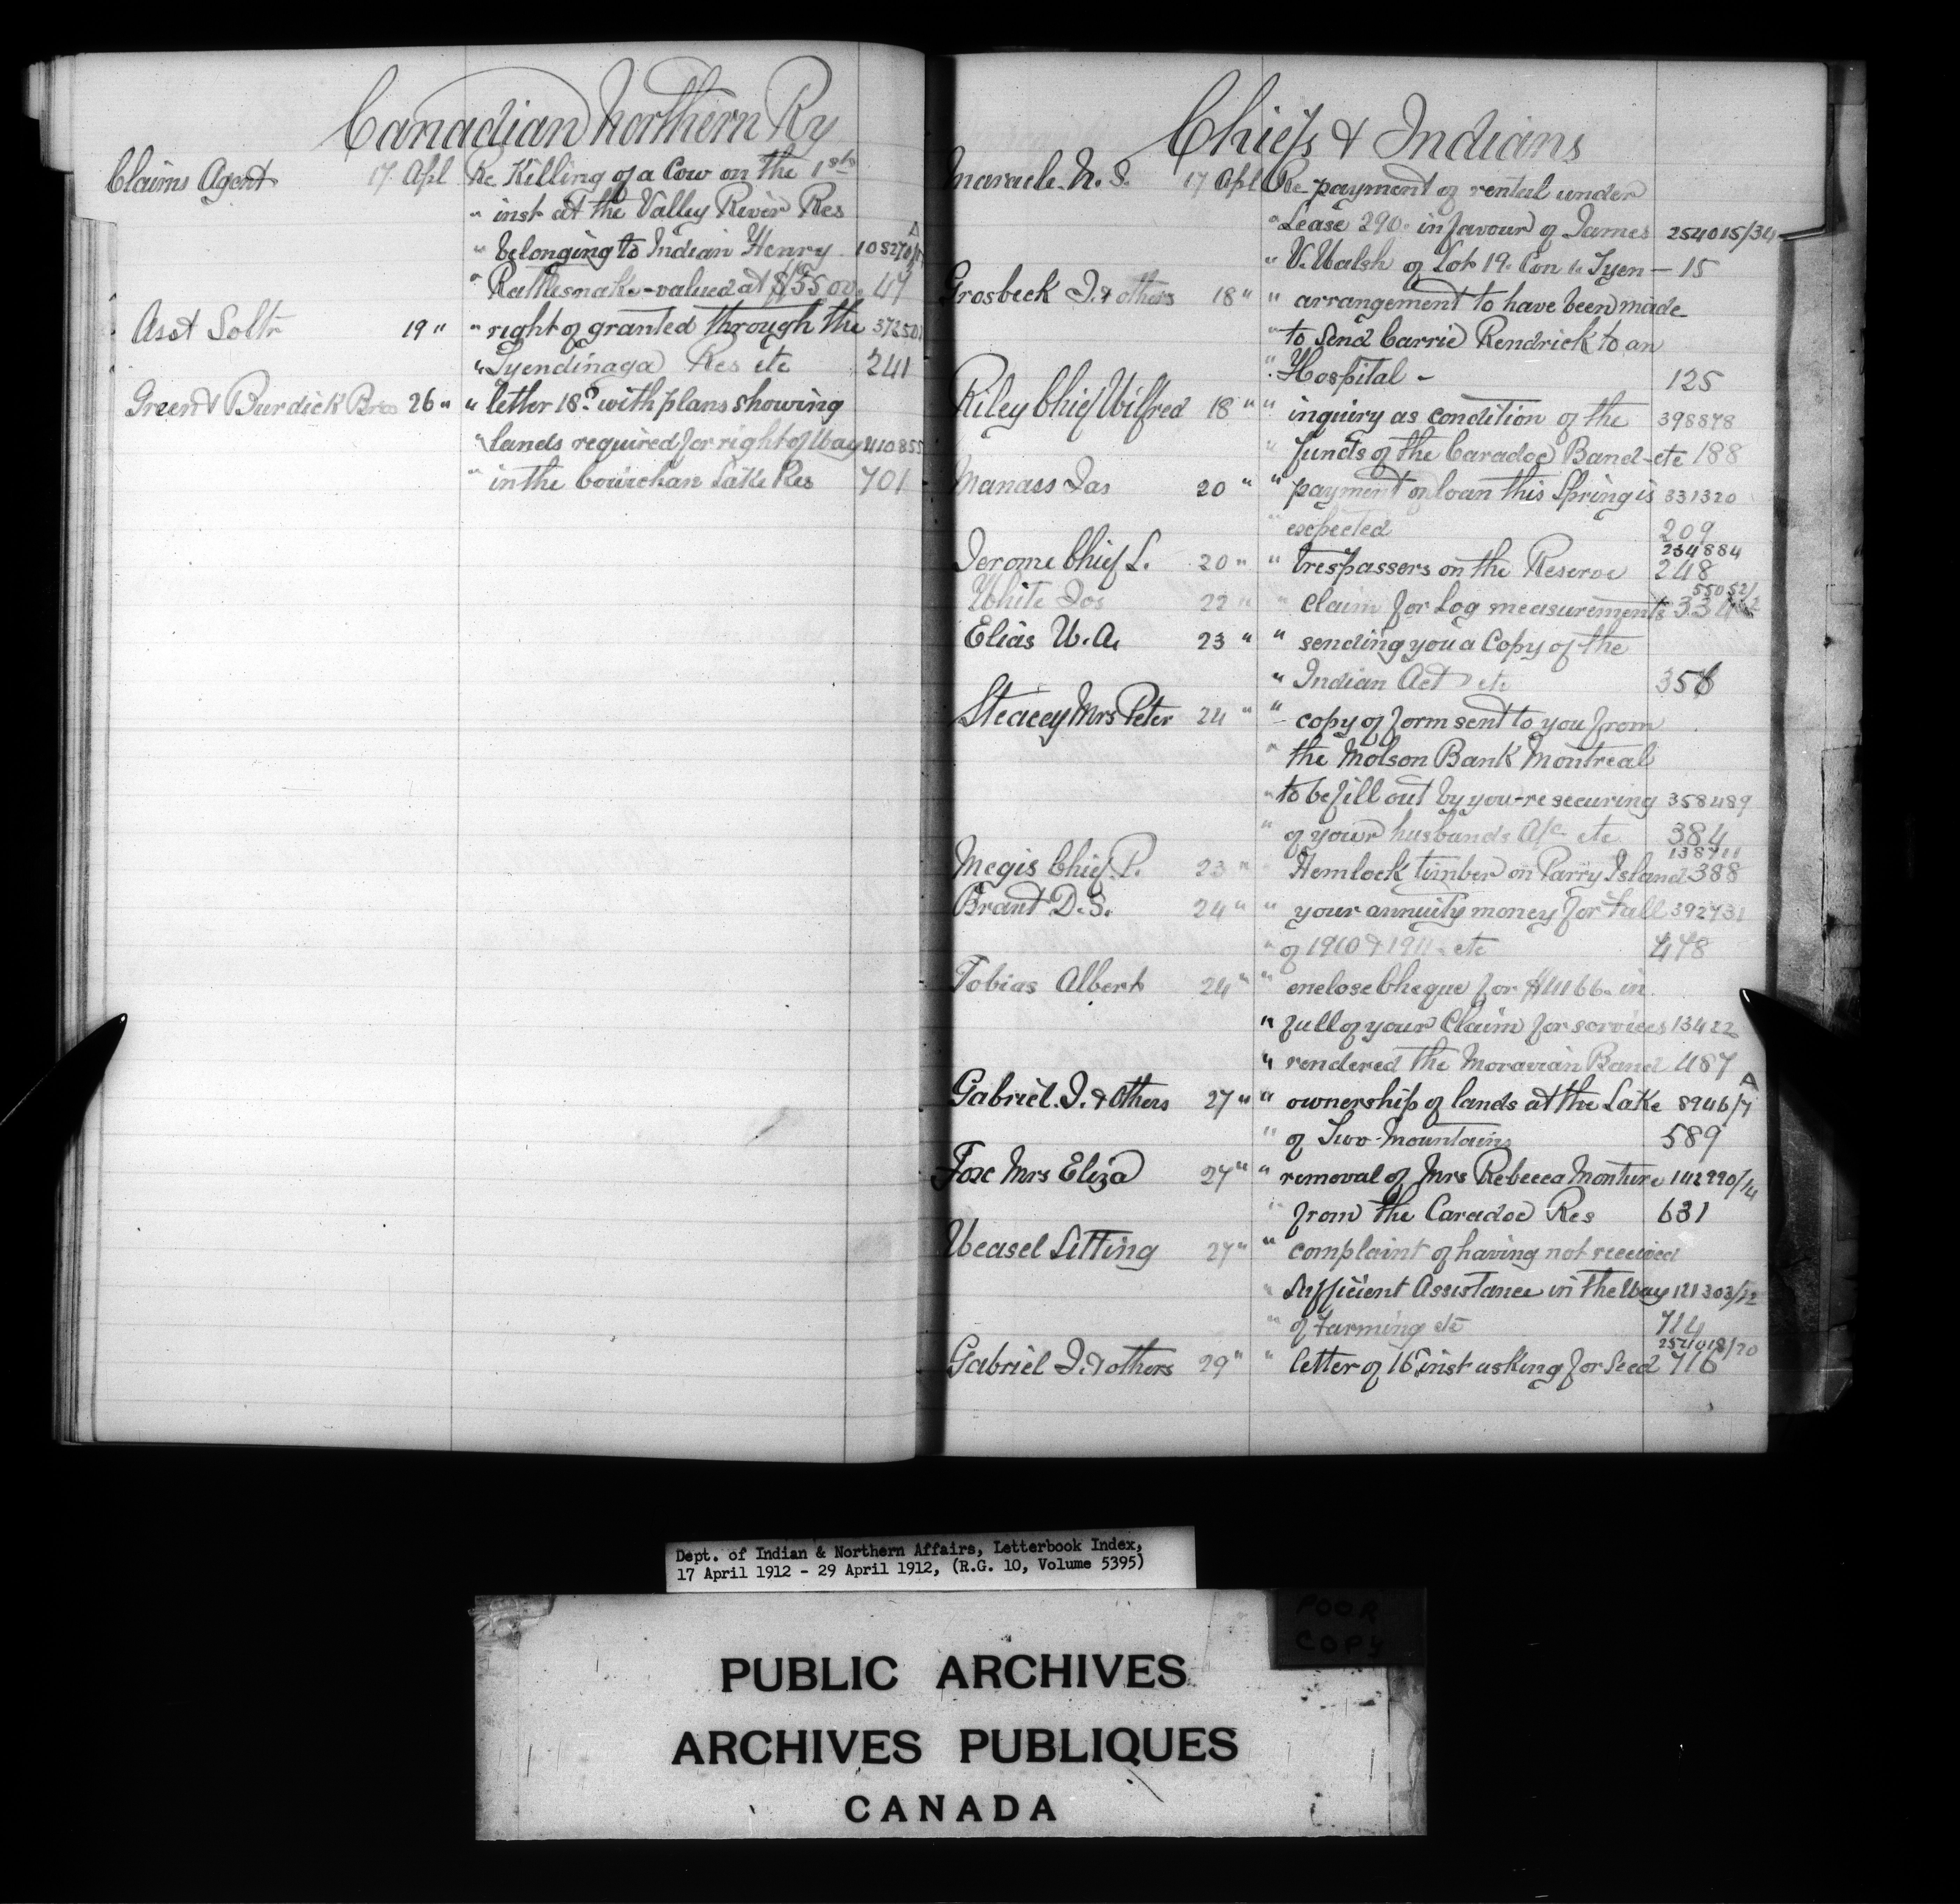 Canadian Northern Ry
Claims Agent 17 Apl Re Killing of a Cow on the 1st
" inst at the Valley River Res
" belonging to Indian Henry
" Rattlesnake - valued at $55.00 47
Asst Soltr 19 " " right of granted through the
" Tyendinaga Res etc 241
Green & Burdick Bros 26 " " letter 18? with plans showing
" lands required for right of Way
" in the Cowichan Lake Res 701
Chiefs & Indians
Maracle N. S. 17 Apl Re payment of rental under
" Lease 290. in favour of James 254015/34
" V. Walsh of Lot 19. Con 1. Tyen — 15
Grosbeck J. & others 18 " " arrangement to have been made
" to send Carrie Kendrick to an
" Hospital - 125
Riley Chief Wilfred 18 " " inquiry as condition of the 398878
" funds of the Caradoc Band - etc 188
Manass Jas 20 " " payment on loan this Spring is 331320
" expected 209
Jerome Chief L. 20 " " trespassers on the Reserve 234884
248
White Jos 22 " " Claim for Log measurements
Elias W. A. 23 " " sending you a Copy of the
" Indian Act etc 358
Steacey Mrs Peter 24 " " copy of form sent to you from
" the Molson Bank Montreal
" to be fill out by you - re securing 358489
" of your husbands A/c etc 384
Megis Chief P. 23 " " Hemlock timber on Parry Island 138711
388
Brant D. S. 24 " " your annuity money for Fall 392731
" of 1910 & 1911 - etc 478
Tobias Albert 24 " " enclose Cheque for in
" full of your Claim for services 13422
" rendered the Moravian Band 487
Gabriel J. & Others 27 " " ownership of lands at the Lake 8946/7 A
" of Two Mountains 589
Fox Mrs Eliza 27 " " removal of Mrs Rebecca Monture 142990/4
" from the Caradoc Res 631
Weasel Sitting 27 " " complaint of having not received
" Sufficient Assistance in the Way 121303/12
" of Farming etc 714
Gabriel J. & others 29 " " letter of 16th inst asking for Seed 254018/20
716
Dept. of Indian & Northern Affairs, Letterbook Index,
17 April 1912 - 29 April 1912, (R.G. 10, Volume 5395)
POOR
COPY
PUBLIC ARCHIVES
ARCHIVES PUBLIQUES
CANADA